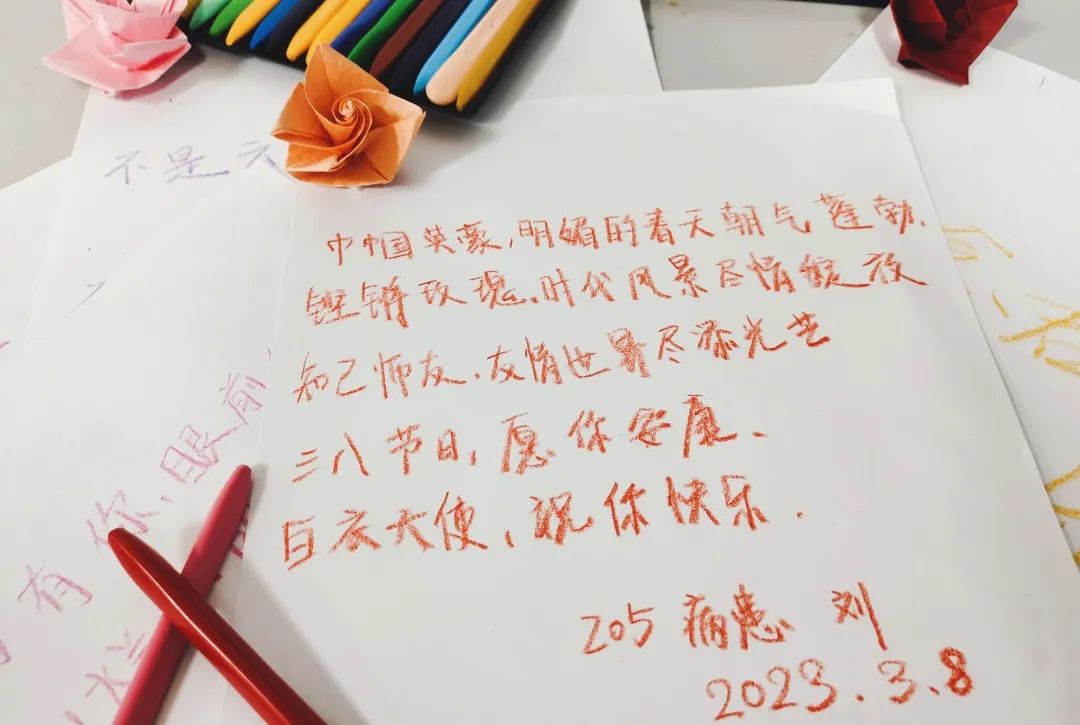 不是天
巾帼英豪,明媚的春天朝气蓬勃.
铿锵玫瑰.时代风景尽情绽放
知己师友.友情世界尽添光芒
三八节日,愿你安康.
白衣天使,祝你快乐.
205 病患 刘
2023.3.8
有你、眼前